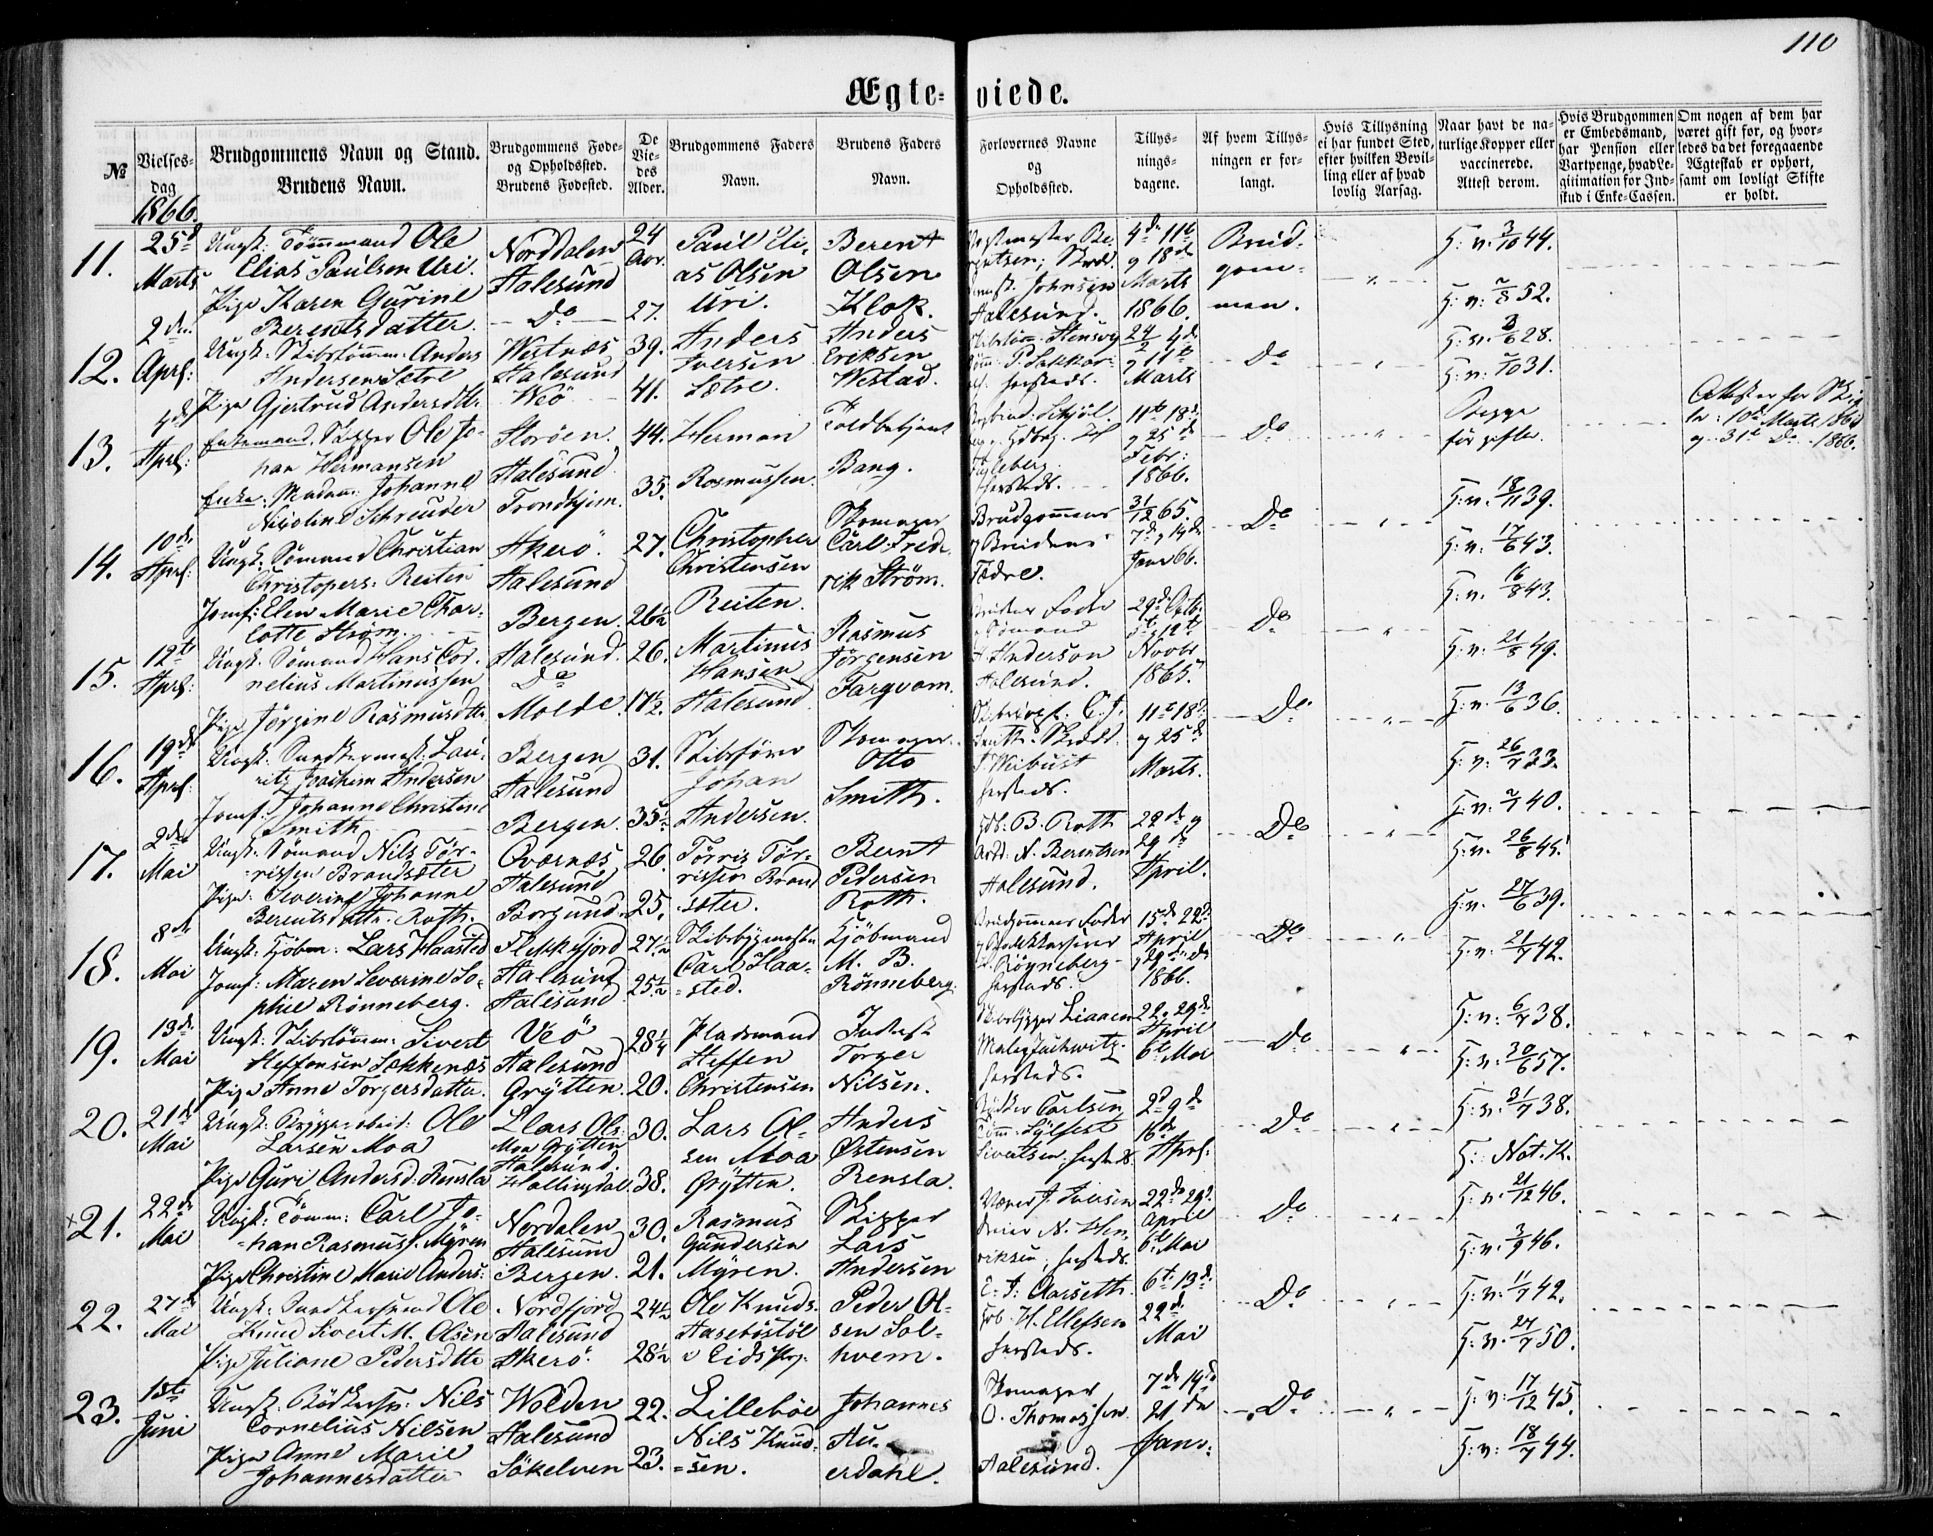 110
Ægte-
viede.
No
Vielses-
dag
1866.
Brudgommens Navn og Stand.
Brudens Navn.
Brudgommens Føde-
og Opholdssted.
Brudens Fødested.
De
Vie-
des
Alder.
Brudgommens Faders
Navn.
Brudens Faders
Navn.
Forlovernes Navne
og
Opholdssted.
Tillys-
nings-
dagene.
Af hvem Tillys-
ningen er for-
langt.
Hvis Tillysning
ei har fundet Sted,
efter hvilken Bevil-
ling eller af hvad
lovlig Aarsag.
Naar havt de na-
turlige Kopper eller
vaccinerede.
Attest derom.
Hvis Brudgommen
er Embedsmand,
har Pension eller
Vartpenge, hvad Le-
gitimation for Ind-
skud i Enke-Cassen.
Om nogen af dem har
været gift før, og hvor-
ledes da det foregaaende
Ægteskab er ophørt,
samt om lovligt Skifte
er holdt.
11.
25d
Marts
Ungk: Tømmand Ole
Elias Paulsen Uri.
Pige Karen Gurine
Berentsdatter.
Norddalen
Aalesund
Do
24
Aar.
27.
Paul Eli-
as Olsen
Uri.
Berent
Olsen
Klok.
Johnsen
Aalesund.
4de 11te
og 18de
Marts
1866.
Brud-
gom-
men.
G: v. 3/10 44.
G: v: 2/8 52.
12.
2den
April:
Ungk: Skibstømm: Anders
Andersen Sætre
Pige Gjertrud Andersdtr:
Westnæs
Aalesund
Weø
39.
41.
Anders
Iversen
Sætre.
Anders
Eriksen
Westad.
hersteds.
24/2 4de
og 11te
Marts
Do
G: v. 3/6 28.
G: v: 2/10 31.
13.
5de
April:
Enkemand. Skipper Ole Jo-
han Hermansen
Enke: Madam: Johanne
Nicoline Schreuder
Storøen.
Aalesund
Trondhjem.
44.
35.
Herman
Rasmussen.
Toldbetjent
Bang.
hersteds.
11te 18de
og 25de
Febr:
1866.
Do
Begge
før gifte.
Attester for Skif
te: 10de Marts 1860
og 31te Do 1866.
14.
10de
April:
Ungk: Sømand Christian
Christopers: Reiten
Jomf: Elen Marie Char-
lotte Strøm.
Akerø.
Aalesund
Bergen.
27.
26½
Christopher
Christensen
Reiten.
Skomager
Carl Frede
rik Strøm.
Brudgommens
og Brudens
Fædre.
31/12 65.
7de og 14de
Janr 66.
Do
G: v. 18/11 39.
G: v: 17/6 43.
15.
12te
April:
Ungk: Sømand Hans Cor-
nelius Martinussen
Pige Jørgine Rasmusdtr
Aalesund.
Do
Molde.
26.
17½.
Martinus
Hansen
Aalesund
Rasmus
Jørgensen
Fargvam.
Sømand
Anderson
Aalesund.
29de Octb:
5te 12te
Novbr
1865.
Do
G: v. 16/8 43.
G: v: 21/8 49.
16.
19de
April:
Ungk: Snedkermest: Lau-
ritz Joachim Andersen
Jomf: Johanne Christine
Smith
Bergen
Aalesund
Bergen.
31.
35½
Skibsfører
Johan
Andersen.
Skomager
Otto
Smith.
hersteds.
11te 18de
og 25de
Marts.
Do
G: v. 13/6 36.
G: v: 26/7 33.
17.
2den
Mai
Ungk: Sømand Nils Tør-
rissen Brandsæter
Pige: Severine Johanne
Berentsdatter Roth.
Qværnæs
Aalesund
Borgund.
26
25.
Tørris Tør-
rissen Brand
sæter.
Bernt
Pedersen
Roth.
B. Roth
Arbd: N. Berentsen
Aalesund.
22de og
29de
April.
Do
G: v: 2/7 40.
G: v. 26/8 45.
18.
8de
Mai
Ungk: Kjøbm: Lars Haasted
Jomf: Maren Severine So-
phie Rønneberg.
Flekkefjord
Aalesund
Aalesund
27½
25½
Skibsbygmester
Carl Haa-
sted.
Kjøbmand
M. B.
Rønneberg.
Brudgommens Fader
Rønneberg
hersteds.
15de 22de
April
29de
1866.
Do
G: v. 27/6 39.
G: v: 21/7 42.
19.
13de
Mai
Ungk: Skibstømm: Sivert
Steffensen Sækkenæs
Pige Anne Torgersdatter.
Veø
Aalesund
Grytten
28¼
20.
Pladsmand
Steffen
Christensen
Inderst
Torger
Nilsen.
Skibskipper Liaaen
hersteds.
22. 29de
April
6te Mai
Do
G: v: 6/7 38.
G: v: 30/6 57.
20.
21de
Mai
Ungk: Bryggerarbeid: Ole
Larsen Moa
Pige Guri Andersd: Rensla
Lars Ols
Moa Grytten
Aalesund.
Hallingdal.
30.
38.
Lars Ol-
sen Moa
Grytten.
Anders
Østensen
Rensla.
Bødker Carlsen
Tømm: Sylfest
Sivertsen hersteds.
2d 9de
16de
April:
Do
G: v: 31/7 38.
G: Nat. K.
+21.
22de
Mai
Ungk: Tømm: Carl Jo-
han Rasmuss. Myren
Pige Christine Marie Anders:
Nordalen
Aalesund
Bergen.
30.
21.
Rasmus
Gundersen
Myren.
Skipper
Lars
Andersen
J. Iversen
N. Hen
riksen, hersteds.
22de 29de
April
6te Mai
Do
G: v: 21/12 46.
G: v: 3/9 46.
22.
27de
Mai
Ungk: Snedkersvend Ole
Knud Sivert M. Olsen
Pige Juliane Pedersdtr
Nordfjord
Aalesund
Akerø.
24½
28½
Ole Knuds.
Aasebøstøl
i Eids Prg.
Peder Ol-
sen Sol-
hvem.
E. I: Aarseth.
H. Ellefsen
hersteds.
6te 13de
22de
Mai
Do
G: v: 11/7 42.
G: v. 27/7 50.
23.
1ste
Juni
Ungk. Bødkersv: Nils
Cornelius Nilsen
Pige Anne Marie
Johannesdatter
Wolden
Aalesund
Søkelven
22.
23.
Lillebøe
Nils Knud-
sen.
Johannes
Au-
erdahl.
Skomager
O. Thomassen
Aalesund.
7de 14de
21de
Janr:
Do
G: v: 17/12 45.
G: v: 18/7 44.